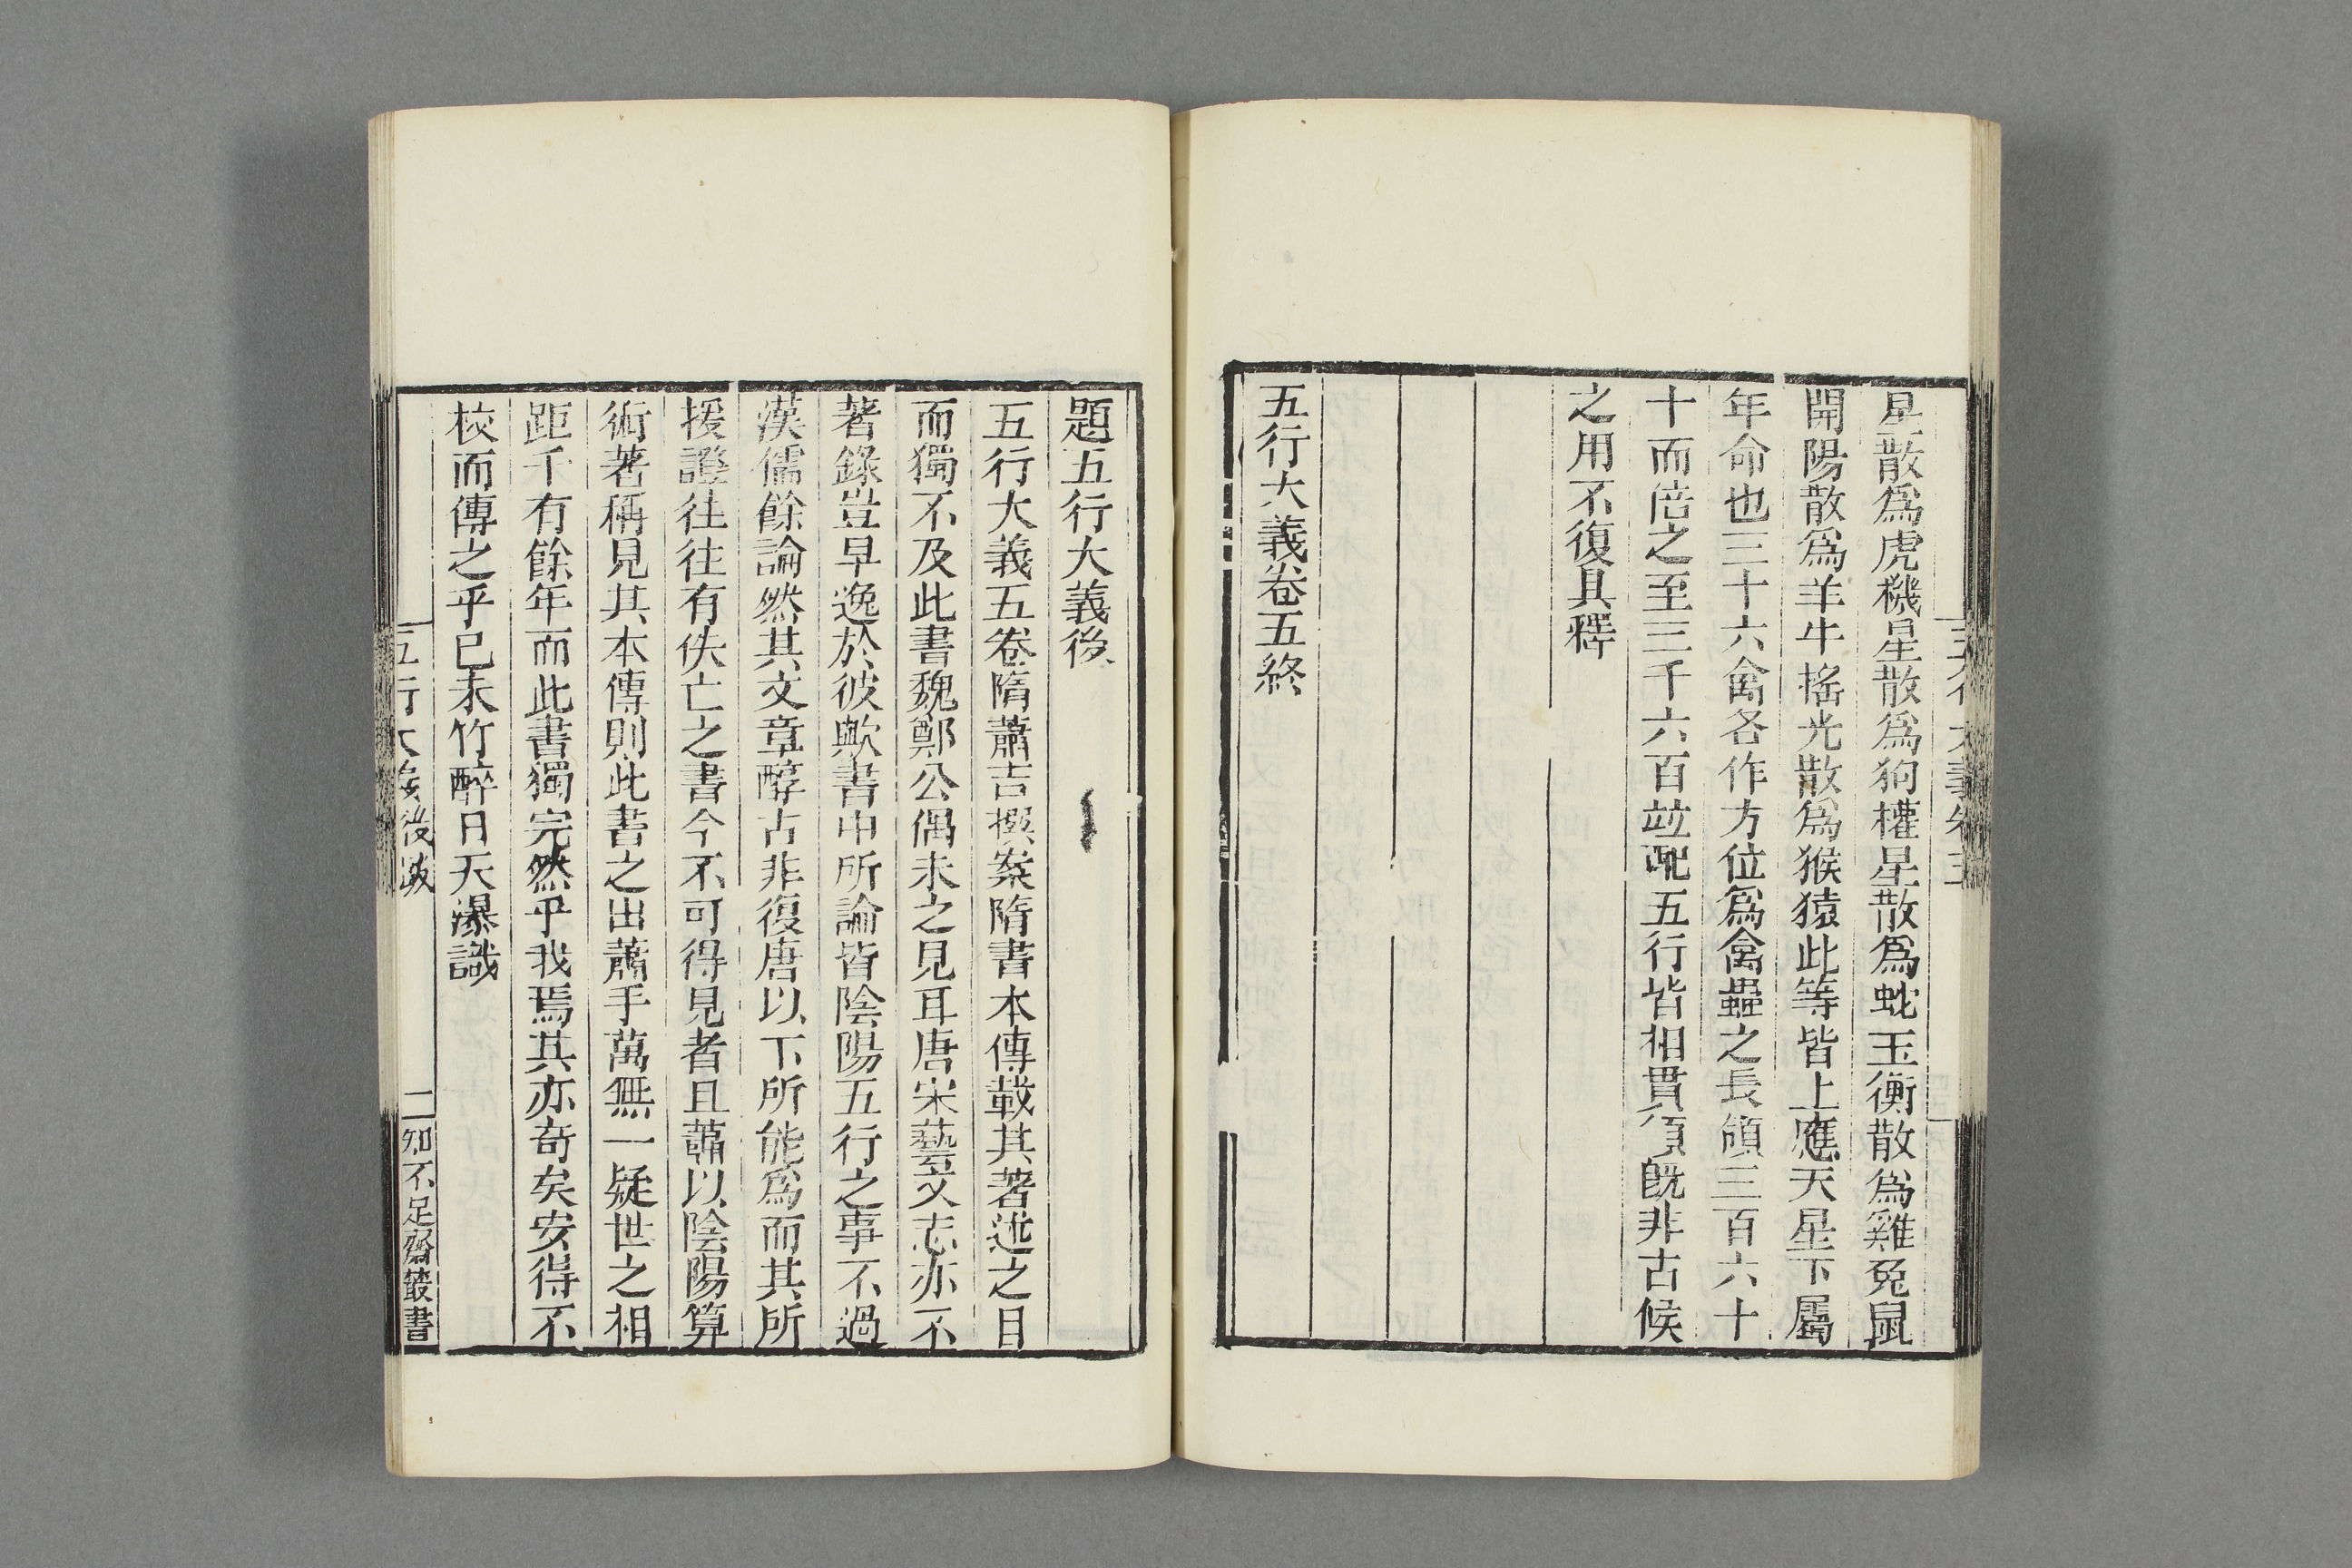 星散爲虎機星散爲狗權星散爲蛇玉衡散爲雞兔鼠
開陽散爲羊牛搖光散爲猴猿此等皆上應天星下屬
年命也三十六禽各作方位爲禽蟲之長領三百六十
十而倍之至三千六百竝配五行皆相貫須旣非古候
之用不復具釋
五行大義卷五終
題五行大義後
五行大義五卷隋蕭吉撰案隋書本傳載其著述之目
而獨不及此書魏鄭公偶未之見耳唐宋藝文志亦不
著錄豈早逸於彼歟書中所論皆陰陽五行之事不過
漢儒餘論然其文章醇古非復唐以下所能爲而其所
援證往往有佚亡之書今不可得見者且蕭以陰陽算
術著稱見其本傳則此書之出蕭手萬無一疑世之相
距千有餘年而此書獨完然乎我焉其亦奇矣安得不
校而傳之乎己未竹醉日天瀑識
五行大義後跋
二
知不足齋叢書